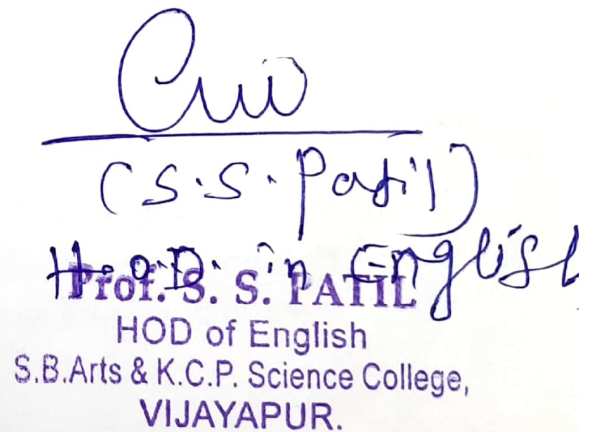 (S.S. Patil)
H.O.D. in English
Prof. S. S. PATIL
HOD of English
S.B.Arts & K.C.P. Science College,
VIJAYAPUR.